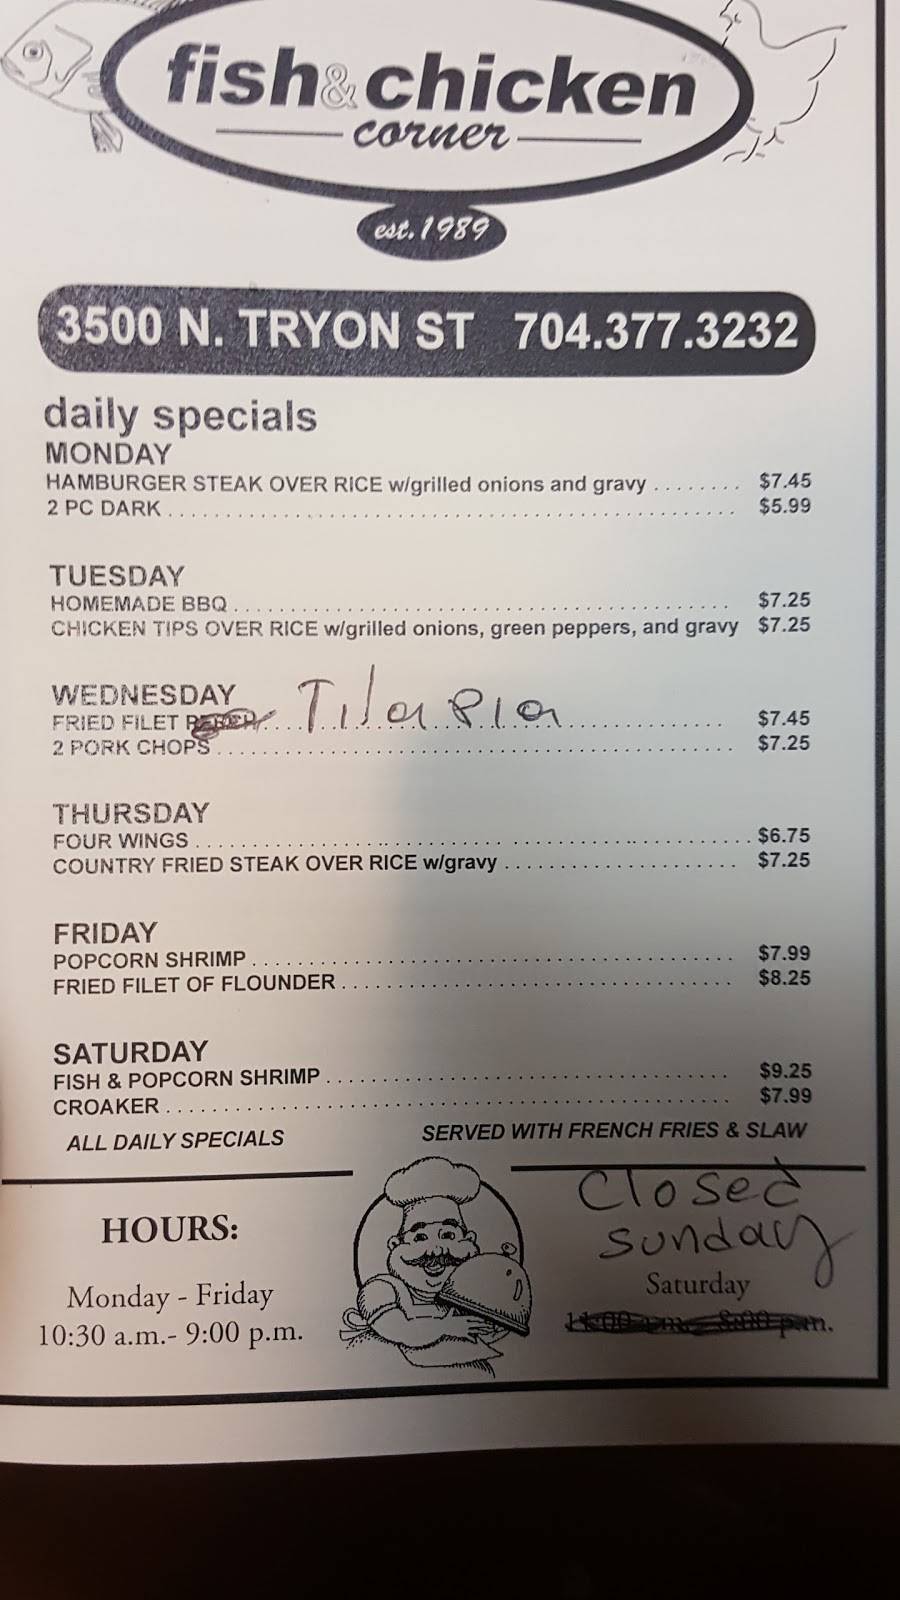 fish & chicken
corner
est. 1989
3500 N. TRYON ST 704.377.3232
daily specials
MONDAY
HAMBURGER STEAK OVER RICE w/grilled onions and gravy ........ $7.45
2 PC DARK ........ $5.99
TUESDAY
HOMEMADE BBQ ........ $7.25
CHICKEN TIPS OVER RICE w/grilled onions, green peppers, and gravy $7.25
WEDNESDAY
FRIED FILET Tilapia ........ $7.45
2 PORK CHOPS ........ $7.25
THURSDAY
FOUR WINGS ........ $6.75
COUNTRY FRIED STEAK OVER RICE w/gravy ........ $7.25
FRIDAY
POPCORN SHRIMP ........ $7.99
FRIED FILET OF FLOUNDER ........ $8.25
SATURDAY
FISH & POPCORN SHRIMP ........ $9.25
CROAKER ........ $7.99
ALL DAILY SPECIALS SERVED WITH FRENCH FRIES & SLAW
HOURS:
Monday - Friday
10:30 a.m.- 9:00 p.m.
Closed
sunday
Saturday
11:00 a.m. 8:00 p.m.